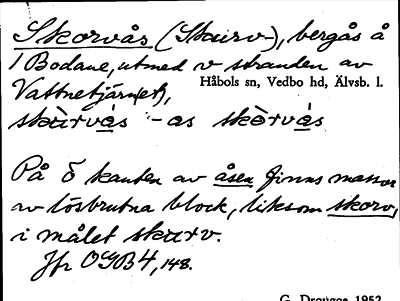 Skorvås (Skurv-), bergås å
1 Bodane, utmed v stranden av
Vattnetjärn(et),
Håbols sn, Vedbo hd, Älvsb. l.
skùrvás -as skòrvás
På ö kanten av åsen finns massor
av lösbrutna block, liksom skorv,
i målet skurv.
Jfr OGB 4, 148.
G. Drougge 1952